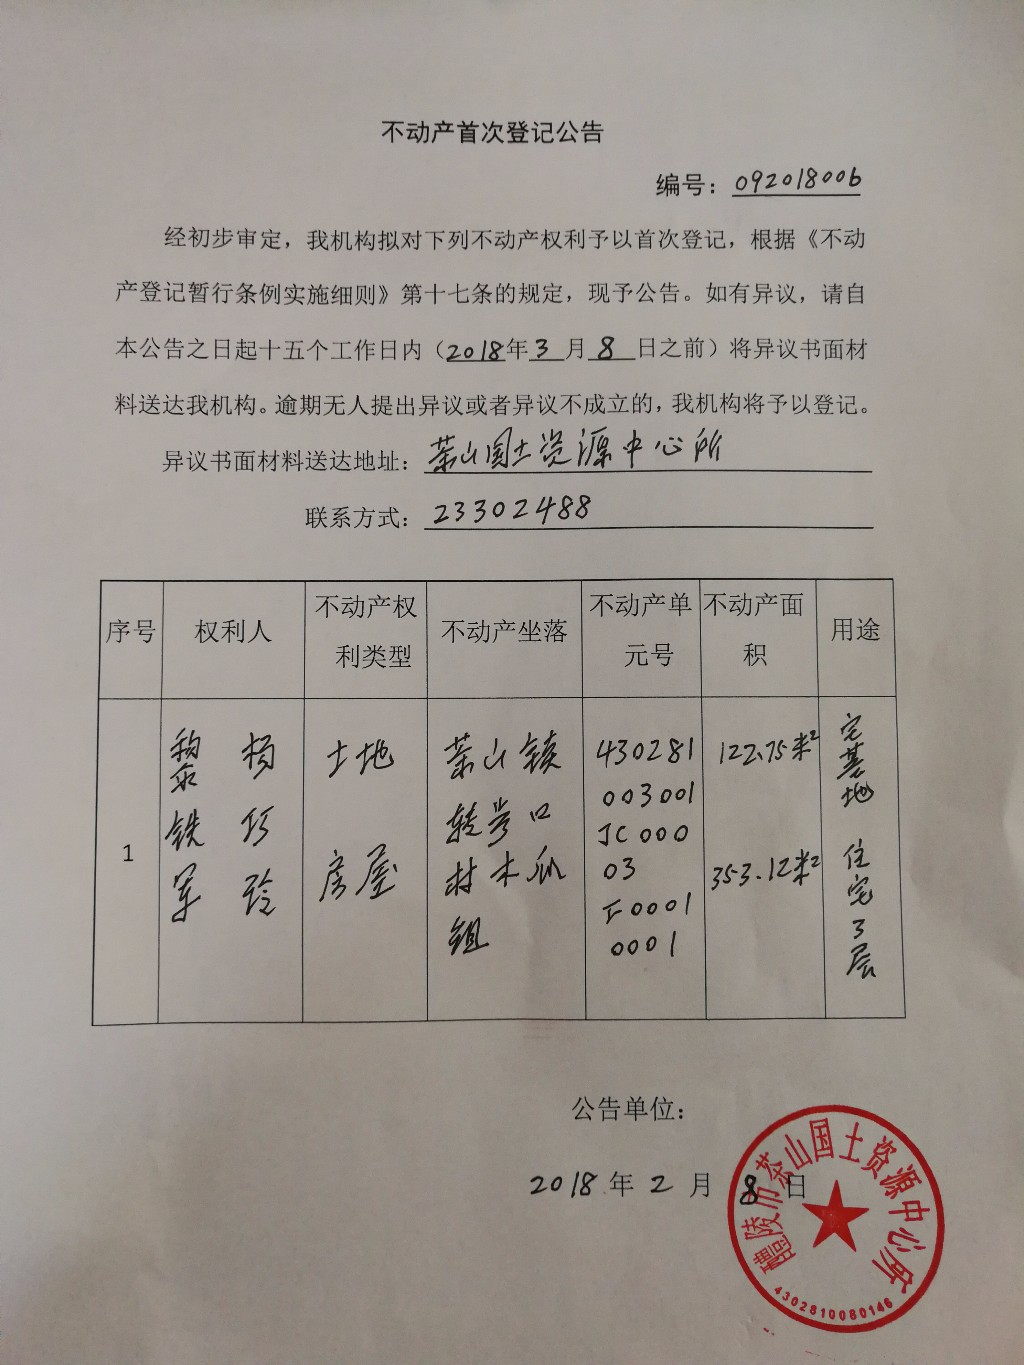 不动产首次登记公告
编号：092018006
经初步审定，我机构拟对下列不动产权利予以首次登记，根据《不动
产登记暂行条例实施细则》第十七条的规定，现予公告。如有异议，请自
本公告之日起十五个工作日内（2018年3月8日之前）将异议书面材
料送达我机构。逾期无人提出异议或者异议不成立的，我机构将予以登记。
异议书面材料送达地址：茶山国土资源中心所
联系方式：23302488
序号 权利人 不动产权利类型 不动产坐落 不动产单元号 不动产面积 用途
1
黎铁军
杨巧玲
土地
房屋
茶山镇
转步口
村木瓜
组
430281
003001
JC000
03
F0001
0001
122.75米²
353.12米²
宅基地
住宅3层
公告单位：
2018年2月8日
醴陵市茶山国土资源中心所
4302810080146